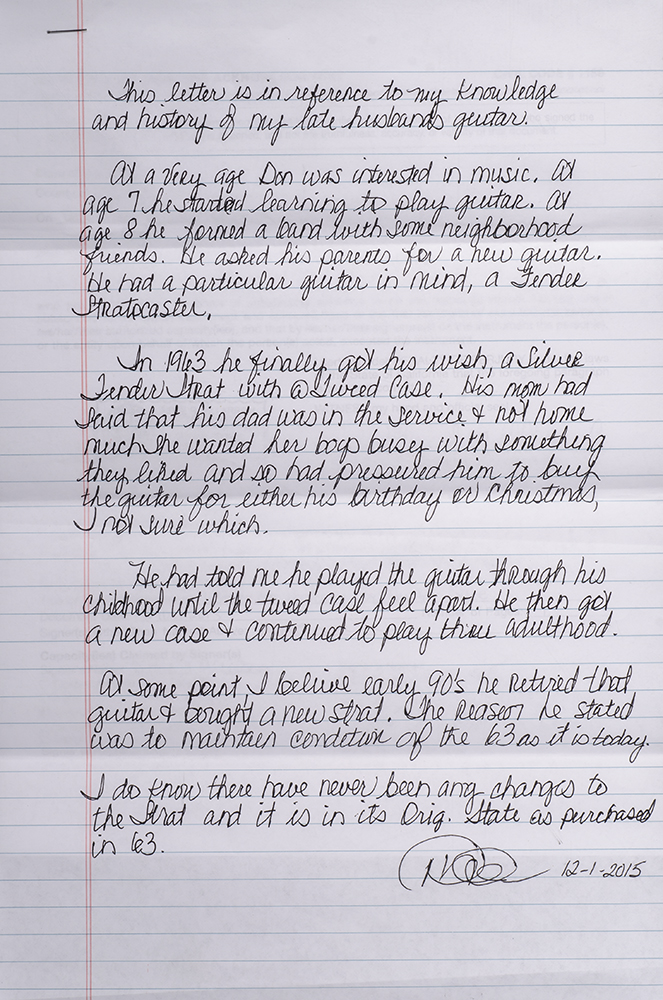 This letter is in reference to my knowledge
and history of my late husbands guitar.
At a very age Don was interested in music. At
age 7 he started learning to play guitar. At
age 8 he formed a band with some neighborhood
friends. He asked his parents for a new guitar.
He had a particular guitar in mind, a Fender
Stratocaster.
In 1963 he finally got his wish, a Silver
Fender Strat with a Tweed Case. His mom had
said that his dad was in the service & not home
much she wanted her boys busy with something
they liked and so had pressured him to buy
the guitar for either his birthday or Christmas,
I not sure which.
He had told me he played the guitar through his
childhood until the tweed case feel apart. He then got
a new case & continued to play thru adulthood.
At some point I believe early 90's he retired that
guitar & bought a new strat. The reason he stated
was to maintain condition of the 63 as it is today.
I do know there have never been any changes to
the Strat and it is in its Orig. State as purchased
in 63.
12-1-2015